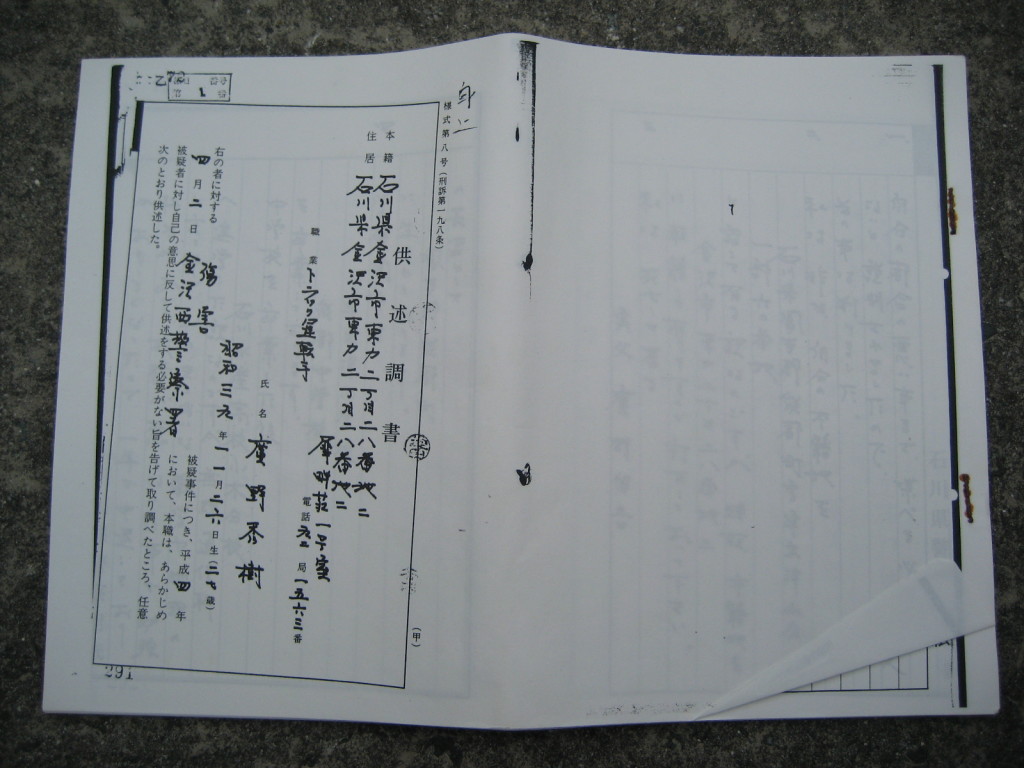 様式第八号(刑訴第一九八条)
(甲)
供述調書
本籍 石川県金沢市東力二丁目二八番地二
住居 石川県金沢市東力二丁目二八番地二
一号室
職業 トラック運転手
電話 局 一五六三番
氏名 廣野 樹
昭和三九年一一月二六日生(二七歳)
右の者に対する 傷害 被疑事件につき、平成四年
四月二日 金沢西警察署 において、本職は、あらかじめ
被疑者に対し自己の意思に反して供述をする必要がない旨を告げて取り調べたところ、任意
次のとおり供述した。
291